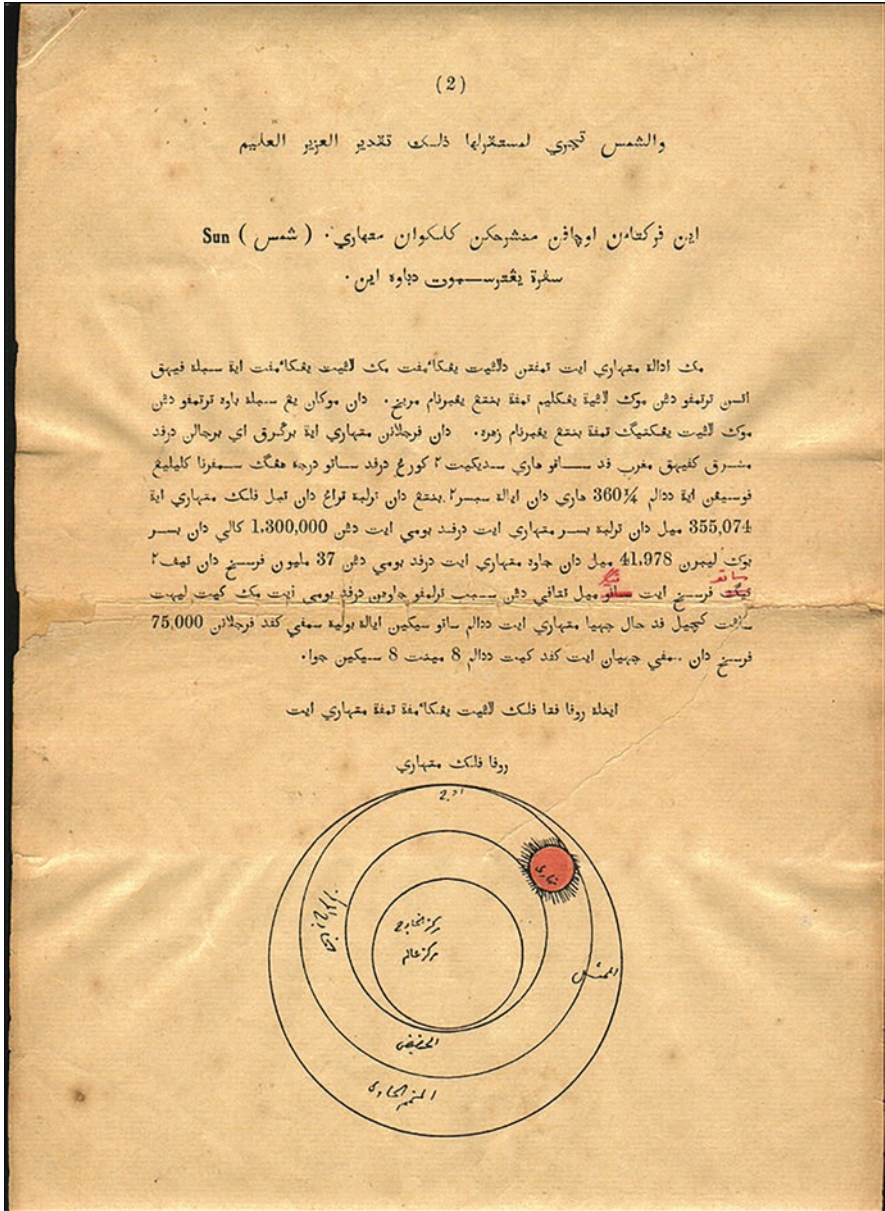 (2)
والشمس تجري لمستقرلها ذلك تقدير العزيز العليم
اين فركتاءن اوچافن منشرحكن كلكوان متهاري. ( شمس ) Sun
سفرة يڠترسـبوت دباوه اين.
مك ادالة متهاري ايت تمفتن دلاڠيت يڠكأمفت مك لاڠيت يڠكأمفت اية سبلة فيهق
اتسن ترتمفو دڠن موك لاڠية يڠكليم تمفة بنتڠ يڠبرنام مريخ. دان موكان يڠ سبلة باوه ترتمفو دڠن
موك لاڠيت يڠكتيگ تمفة بنتڠ يڠبرنام زهره. دان فرجلانن متهاري اية برگرق اي برجالن درفد
مشرق كفيهق مغرب فد ساتو هاري سديكيت ٢ كورڠ درفد ساتو درجه هڠگ سمفرنا كليليڠ
فوسيڠن اية ددالم 360¼ هاري دان ايالة سبسر٢ بنتڠ دان ترلبة تراڠ دان تبل فلك متهاري اية
355,074 ميل دان ترلبة بسر متهاري ايت درفد بومي ايت دڠن 1,300,000 كالي دان بسر
بوكـ ليبرن 41,978 ميل دان جاوه متهاري ايت درفد بومي دڠن 37 مليون فرسخ دان تيف٢
ساتو تيگ
تيگ فرسخ ايت ساتو ميل تتافي دڠن سبب ترلمفو جاوهن درفد بومي ايت مك كيت ليهت
ساڠت كچيل فد حال جهيا متهاري ايت ددالم ساتو سيكين ايالة بولية سمفي كفد فرجلانن 75,000
فرسخ دان سمفي جهيان ايت كفد كيت ددالم 8 مينت 8 سيكين جوا.
اينله روفا فقا فلك لاڠيت يڠكأمفة تمفة متهاري ايت
روفا فلك متهاري
اوج
متهاري
مركز الخارج
مركز عالم
الممثل
الحضيض
المتمم الحاوى